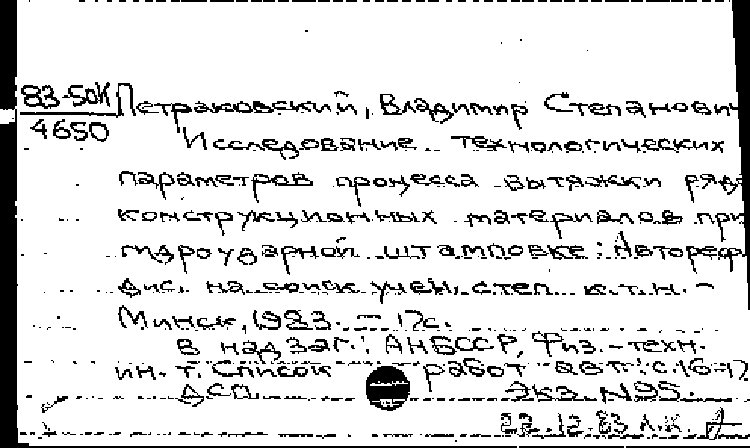 83-50К
4650
Петраковский, Владимир Степанович
Исследование технологических
параметров процесса вытяжки ряда
конструкционных материалов при
гидроударной штамповке: Автореф.
дис. на соиск учен. степ. к.т.н. -
Минск, 1983. - 17с.
В надзаг.: АНБССР, Физ.-техн.
ин-т. Список работ авт.: с.16-17
ДСП. Экз. N95.
22.12.83 Л.К.